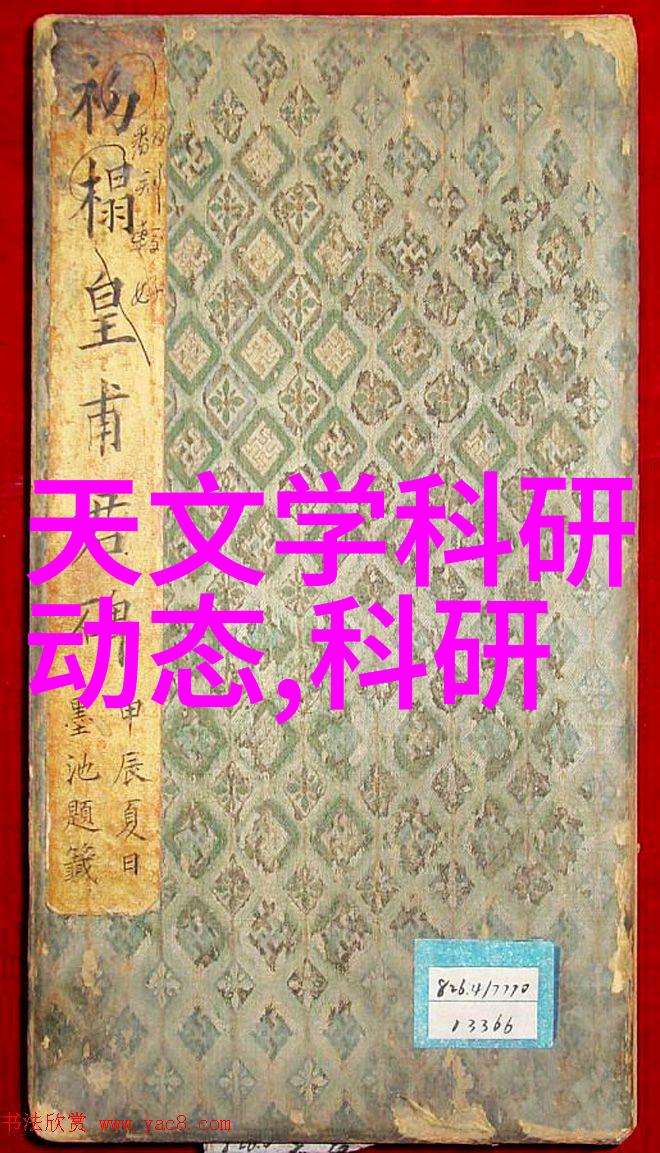 初榻皇甫君碑
翻刻較好
甲辰夏日
墨池題籤
天文学科研
动态,科研
826.4/7770
13366
书法欣赏 www.yac8.com